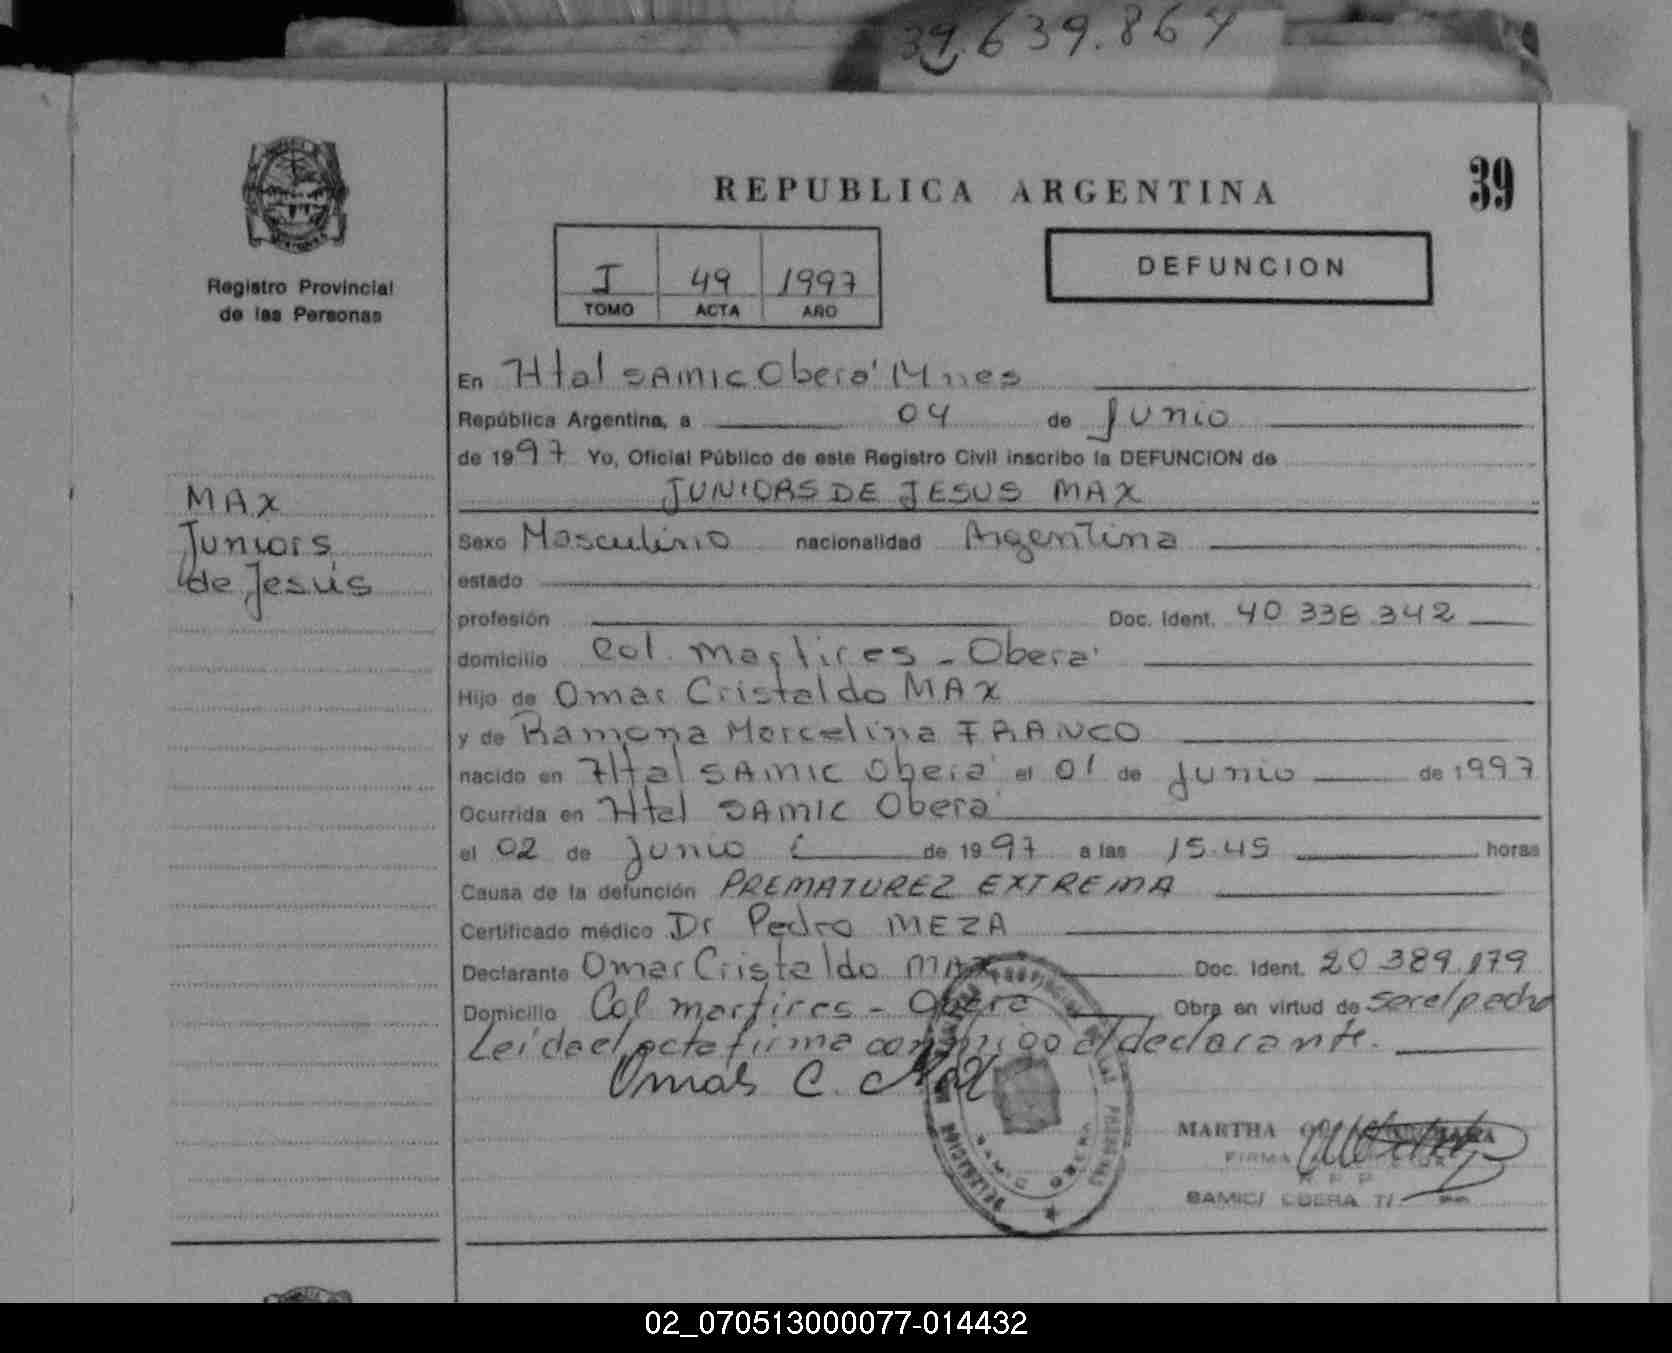 39.639.864
39
REPUBLICA ARGENTINA
I 49 1997
TOMO ACTA AÑO
DEFUNCION
Registro Provincial
de las Personas
MAX
Juniors
de Jesús
En Htal SAMIC Oberá Mnes
República Argentina, a 04 de Junio
de 1997 Yo, Oficial Público de este Registro Civil inscribo la DEFUNCION de
JUNIORS DE JESUS MAX
Sexo Masculino nacionalidad Argentina
estado
profesión Doc. Ident. 40 338 342
domicilio Col. Martires - Oberá
Hijo de Omar Cristaldo MAX
y de Ramona Marcelina FRANCO
nacido en Htal SAMIC Oberá el 01 de Junio de 1997
Ocurrida en Htal SAMIC Oberá
el 02 de Junio de 1997 a las 15.45 horas
Causa de la defunción PREMATUREZ EXTREMA
Certificado médico Dr Pedro MEZA
Declarante Omar Cristaldo MAX Doc. Ident. 20 389.179
Domicilio Col martires - Obera Obra en virtud de ser el padre
Leída el acta firma conmigo el declarante.
Omar C. Max
MARTHA
FIRMA
R P P
SAMIC/ OBERA
02_070513000077-014432